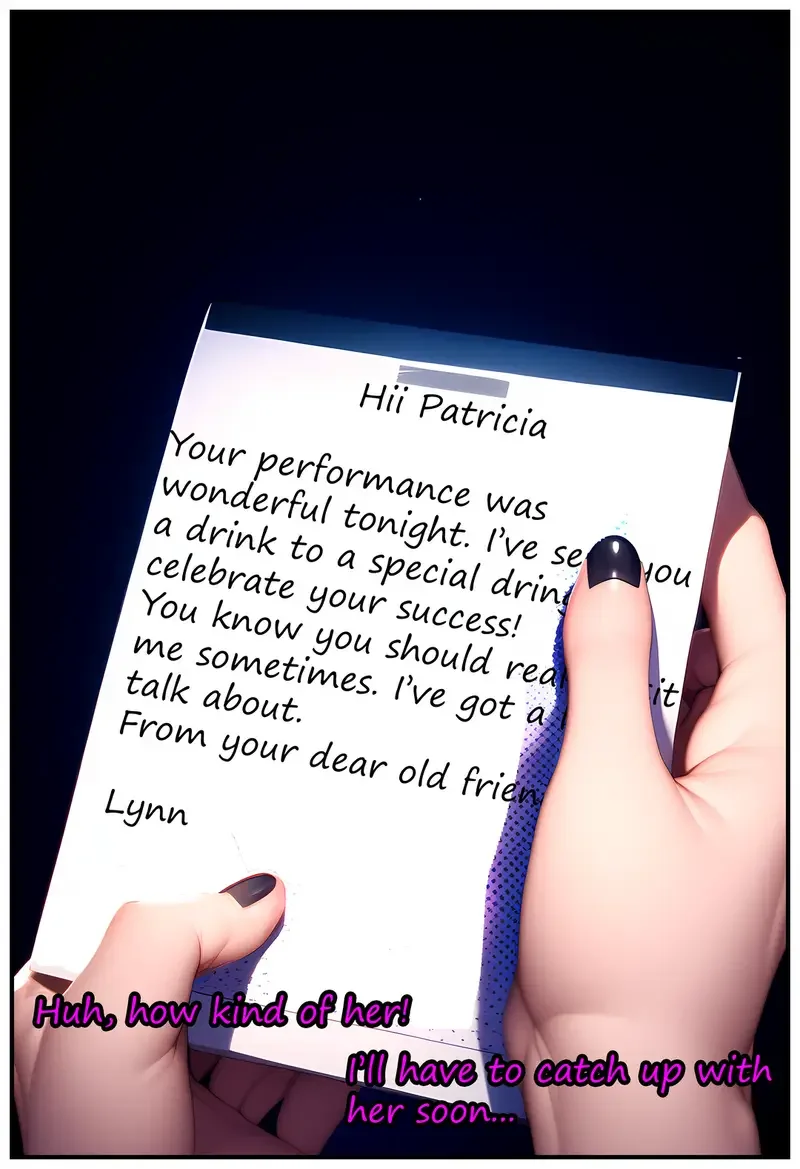 Hii Patricia
Your performance was
wonderful tonight. I've se you
a drink to a special drin
celebrate your success!
You know you should rea it
me sometimes. I've got a
talk about.
From your dear old frien
Lynn
Huh, how kind of her!
I'll have to catch up with
her soon...